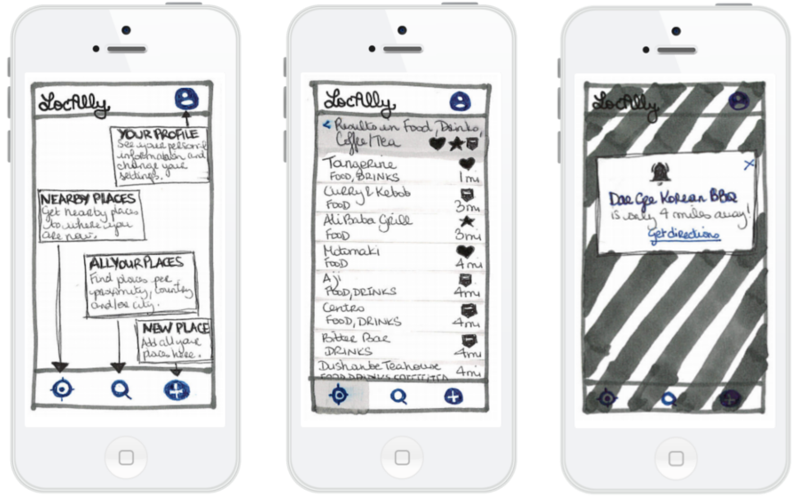 LocAlly
YOUR PROFILE
See your personal
information and
change your
settings.
NEARBY PLACES
Get nearby places
to where you
are now.
ALL YOUR PLACES
Find places per
proximity, country
and/or city.
NEW PLACE
Add all your
places here.
LocAlly
< Results in Food, Drinks,
Coffee/Tea
Tangerine
FOOD, BRINKS
1mi
Curry & Kebob
FOOD
3mi
Ali Baba Grill
FOOD
3mi
Motomaki
FOOD
4mi
Aji
FOOD, DRINKS
4mi
Centro
FOOD, DRINKS
4mi
Bitter Bar
DRINKS
4mi
Dushanbe Teahouse
FOOD, DRINKS, COFFEE/TEA
4mi
LocAlly
X
Dae Gee Korean BBQ
is only 4 miles away!
Get directions